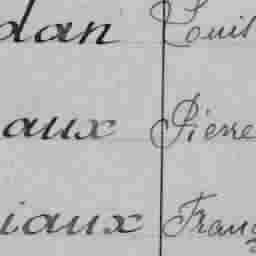 dan Louis
aux Pierre
iaux Franç